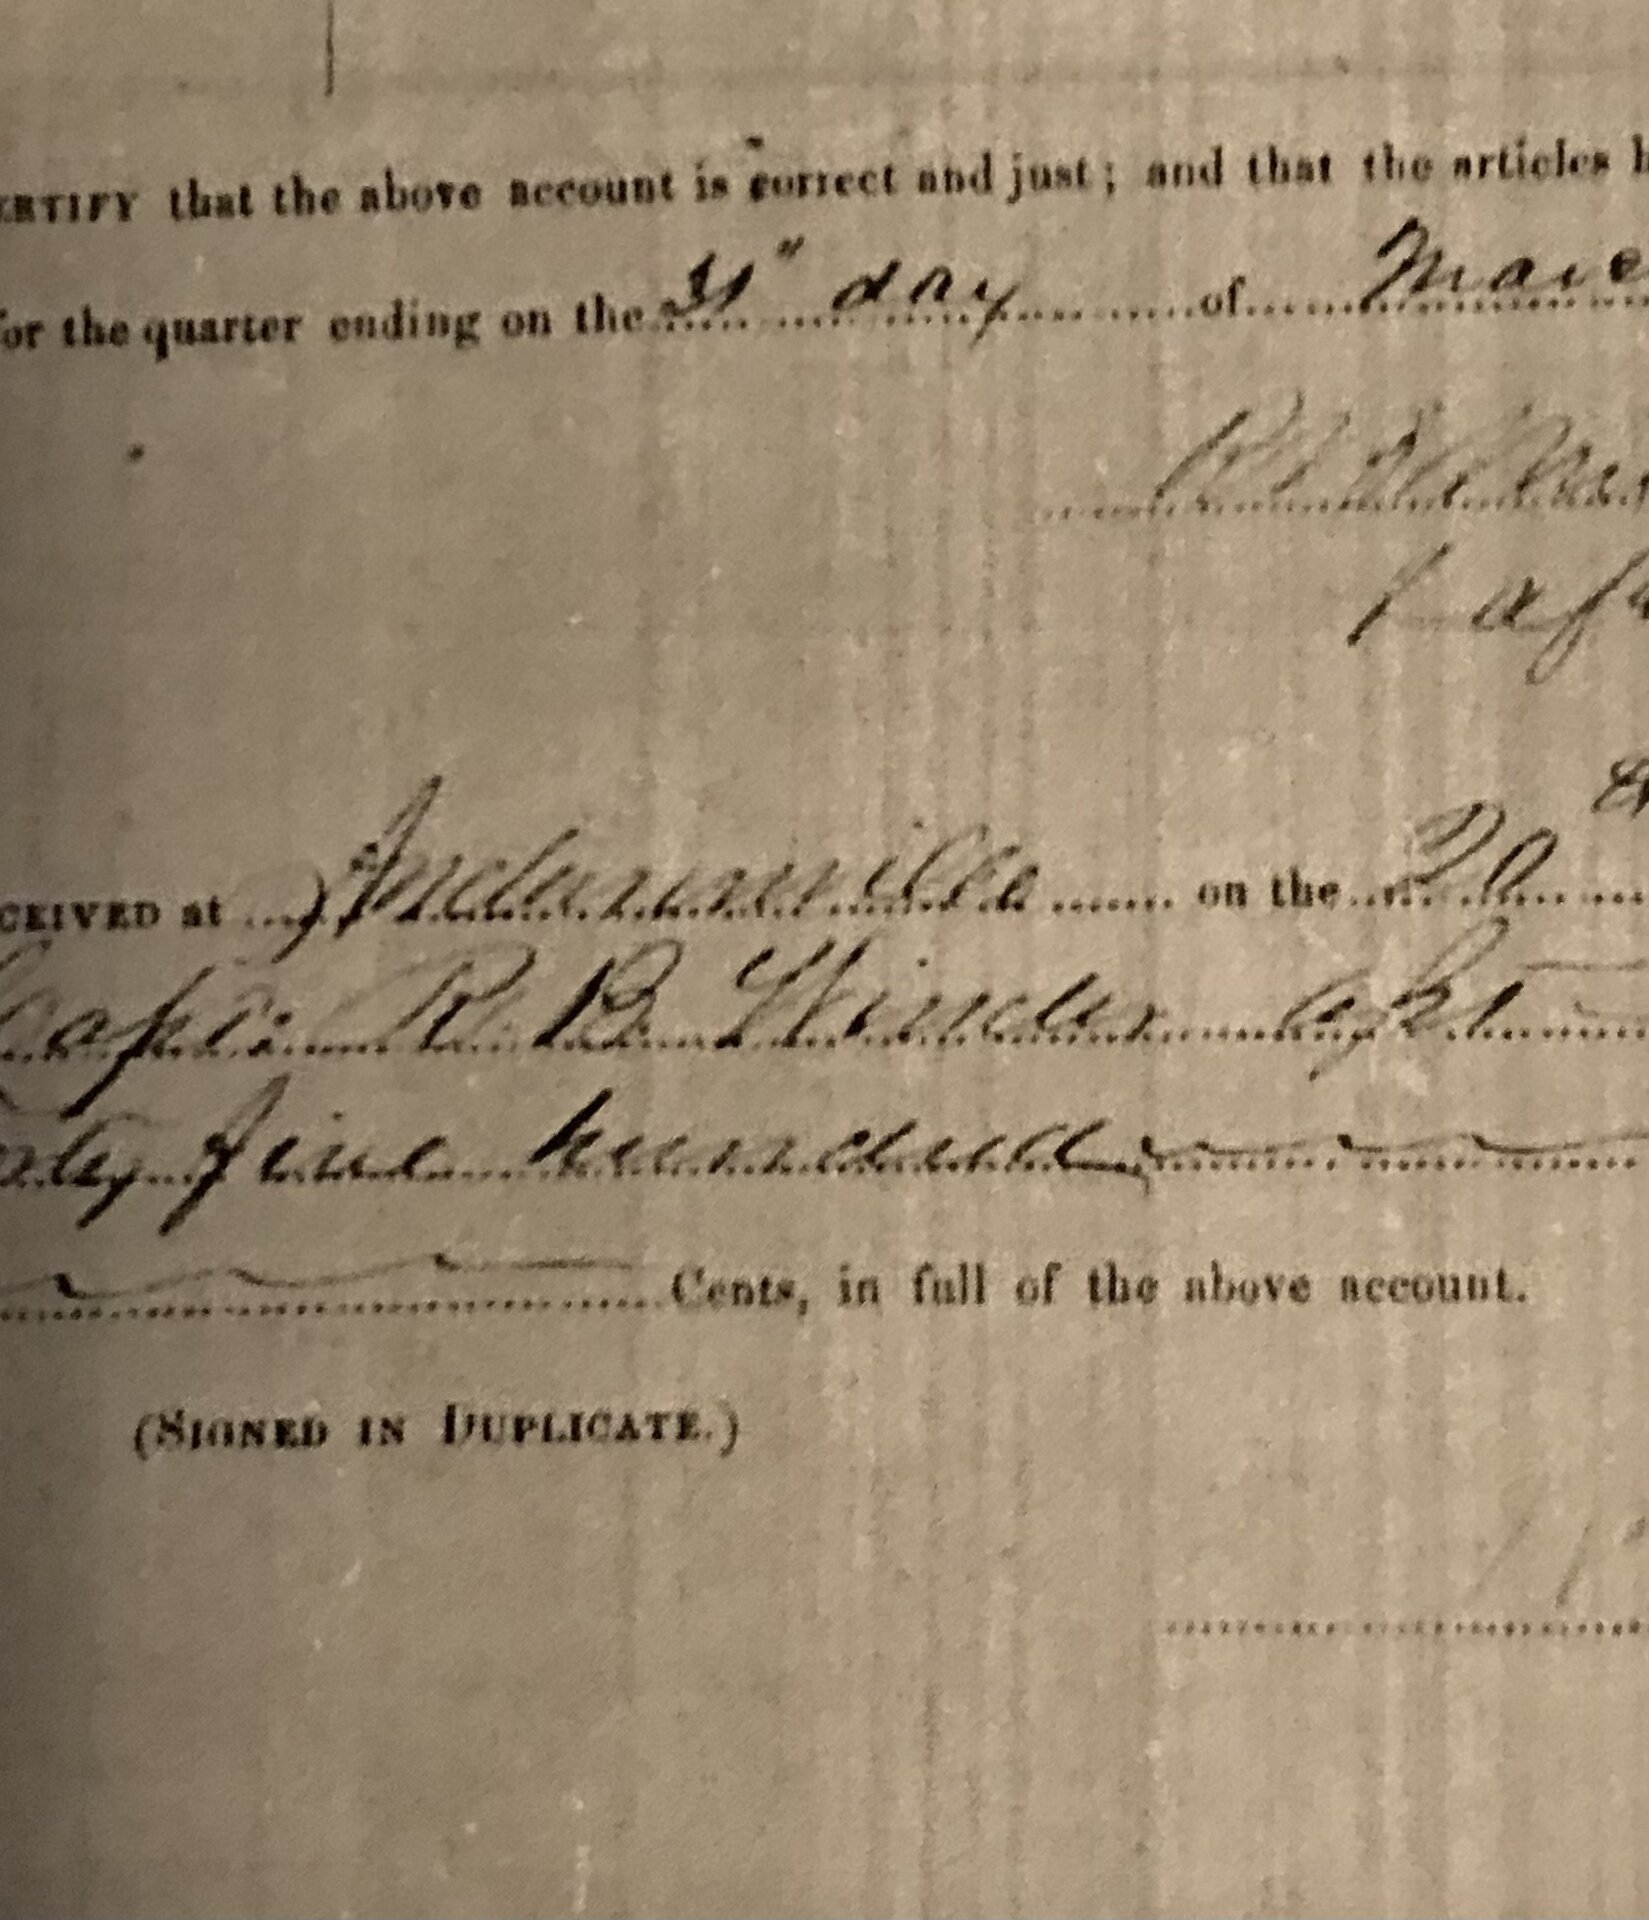 ERTIFY that the above account is correct and just; and that the articles h
for the quarter ending on the 31" day of Marc
R B Win
Cap
CEIVED at Andersonville on the 20
Capt. R B Winder
ty five hundred
Cents, in full of the above account.
(SIGNED IN DUPLICATE.)